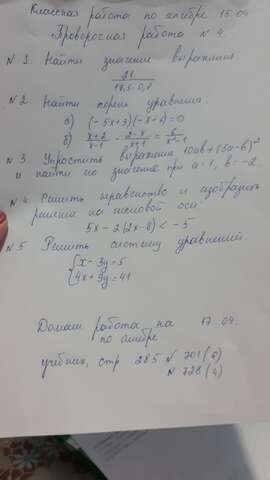 Классная работа по алгебре 15.04
Проверочная работа № 4.
№ 1. Найти значение выражения
21
№ 2. Найти корни уравнения.
а) (-5x+3)(-x+6)=0
б) x+2/x-1 - 2-x/x+1 = 6/x²-1
№ 3. Упростить выражение 10ab+(5a-b)²
и найти его значение при a=1, b=-2
№ 4. Решить неравенство и изобразить
решение на числовой оси
5x-2(2x-8)<-5
№ 5 Решить систему уравнений
{x-3y=5
{4x+9y=41
Домаш работа на 17.04.
по алгебре
учебник, стр 285 № 701(б)
№ 728(4)